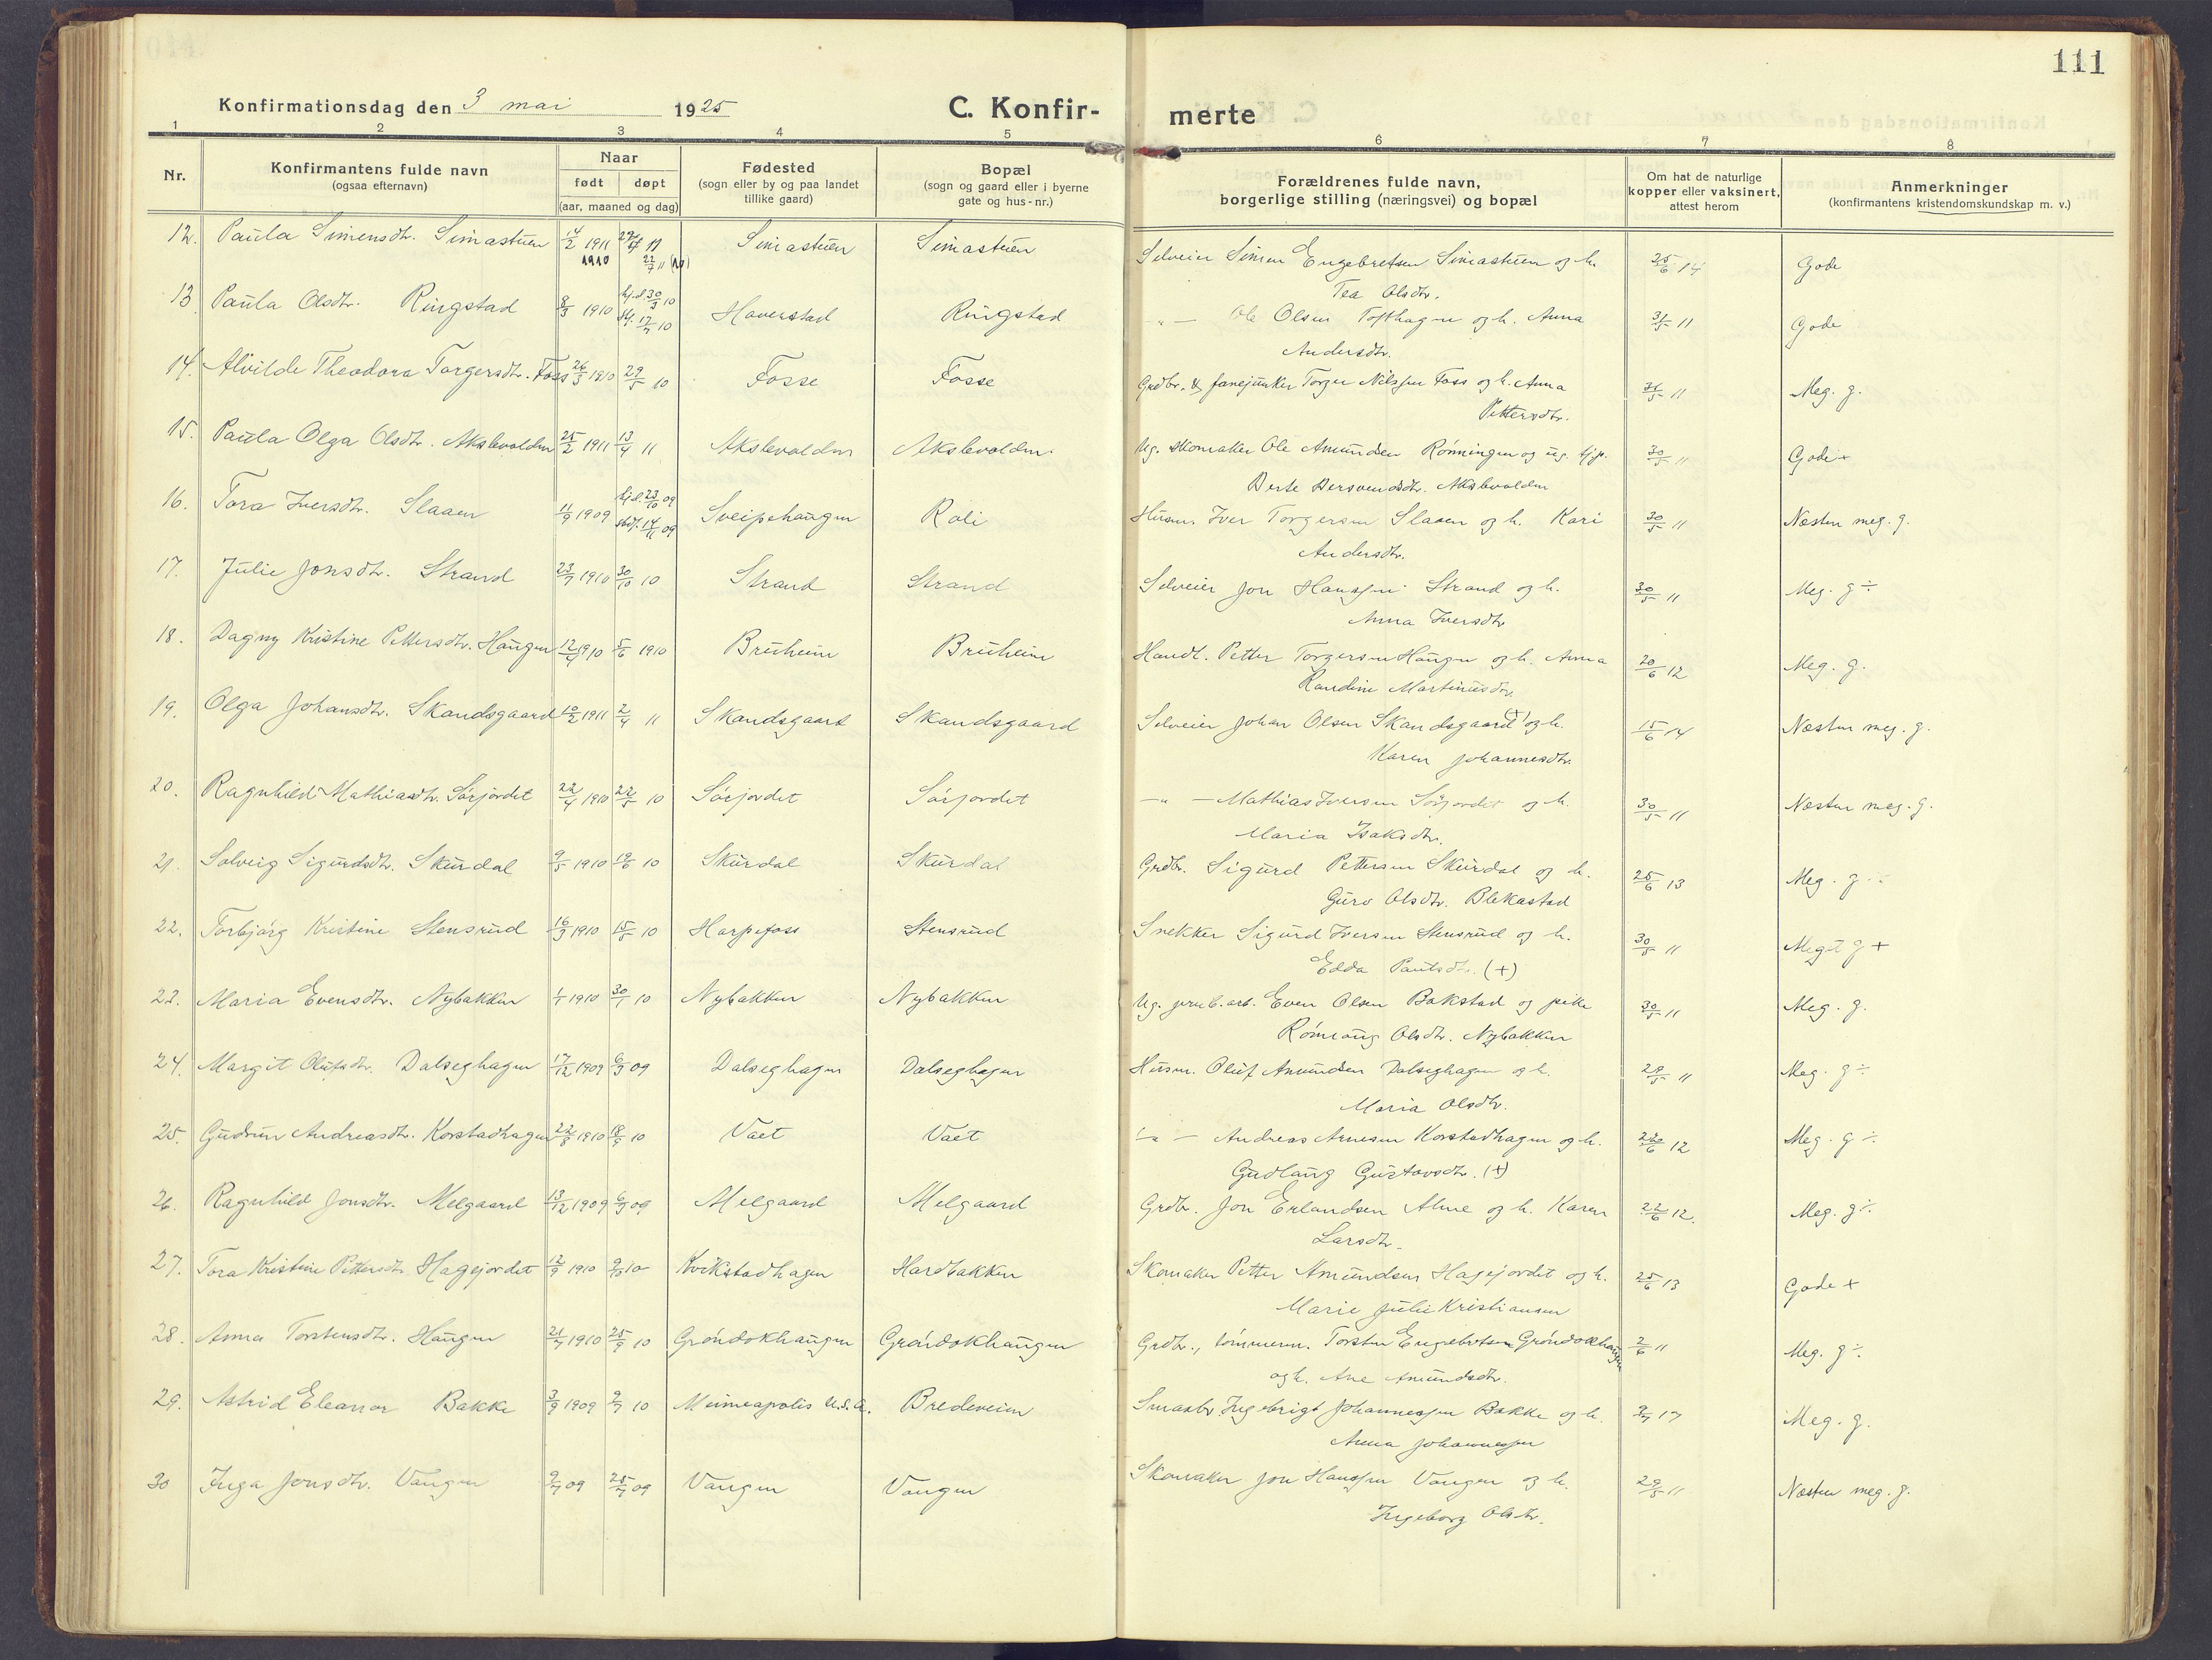 111
Konfirmationsdag den 3 mai 1925
C. Konfir-
merte
1 2 3 4 5 6 7 8
Nr.
Konfirmantens fulde navn
(ogsaa efternavn)
Naar
født døpt
(aar, maaned og dag)
Fødested
(sogn eller by og paa landet
tillike gaard)
Bopæl
(sogn og gaard eller i byerne
gate og hus-nr.)
Forældrenes fulde navn,
borgerlige stilling (næringsvei) og bopæl
Om hat de naturlige
kopper eller vaksinert,
attest herom
Anmerkninger
(konfirmantens kristendomskundskap m. v.)
12. Paula Simensdtr. Simastuen 14/2 1911 1910 Simastuen Simastuen Selveier Simen Engebretsen Simastuen og h. 25/6 14 Gode
Tea Olsdtr.
13 Paula Olsdtr. Ringstad 8/3 1910 hj.d. 30/3 10 17/7 10 Haverstad Ringstad -"- Ole Olsen Tofthagen og h. Anna 31/5 11 Gode
Andersdtr.
14. Alvilde Theodora Torgersdtr. Foss 26/3 1910 29/5 10 Fosse Fosse Grdbr. & fanejunker Torger Nilssen Foss og h. Anna 31/5 11 Meg. g.
Pettersdtr.
15. Paula Olga Olsdtr. Akslevolden 25/2 1911 13/4 11 Akslevolden Akslevolden. Ug. skomaker Ole Amundsen Rønningen og ug. tjp. 30/5 11 Gode+
Berte Bersvendsdtr. Akslevolden
16. Tora Iversdtr. Slaaen 11/9 1909 hj.d. 23/10 09 14/11 09 Sveipehaugen Roli Husm. Iver Torgersen Slaaen og h. Kari 30/5 11 Næsten meg. g.
Andersdtr.
17. Julie Jonsdtr. Strand 23/7 1910 30/10 10 Strand Strand Selveier Jon Hanssen Strand og h. 30/5 11 Meg. g ÷
Anna Iversdtr
18. Dagny Kristine Pettersdtr. Haugen 12/4 1910 5/6 1910 Bruheim Bruheim Handl. Petter Torgersen Haugen og h. Anna 20/6 12 Meg. g.
Randine Martinusdtr.
19. Olga Johansdtr. Skandsgaard 10/2 1911 2/4 11 Skandsgaard Skandsgaard Selveier Johan Olsen Skandsgaard (+) og h. 15/6 14 Næsten meg. g.
Karen Johannesdtr.
20. Ragnhild Mathiasdtr. Sørjordet 22/4 1910 22/5 10 Sørjordet Sørjordet -"- Mathias Iversen Sørjordet og h. 30/5 11 Næsten meg. g.
Maria Isaksdtr.
21. Solveig Sigurdsdtr. Skurdal 9/5 1910 19/6 10 Skurdal Skurdal Grdbr. Sigurd Pettersen Skurdal og h. 25/6 13 Meg. g ÷
Guro Olsdtr. Blekastad
22. Torbjørg Kristine Stensrud 16/3 1910 15/5 10 Harpefoss Stensrud Snekker Sigurd Iversen Stensrud og h. 30/5 11 Meget g +
Edda Paulsdtr. (+)
23. Maria Evensdtr. Nybakken 1/1 1910 30/1 10 Nybakken Nybakken Ug. jernb.arb. Even Olsen Bakstad og pike 30/5 11 Meg. g.
Rønnaug Olsdtr. Nybakken
24. Margit Olufsdtr. Dalseghagen 17/12 1909 6/3 09 Dalseghagen Dalseghagen Husm. Oluf Amundsen Dalseghagen og h. 29/5 11 Meg. g ÷
Maria Olsdtr.
25. Gudrun Andreasdtr. Korstadhagen 22/8 1910 18/9 10 Vaet Vaet -"- Andreas Arnesen Korstadhagen og h. 20/6 12 Meg. g ÷
Gudlaug Gustavsdtr. (+)
26. Ragnhild Jonsdtr. Melgaard 13/12 1909 6/3 09 Melgaard Melgaard Grdbr. Jon Erlandsen Alme og h. Karen 22/6 12. Meg. g ÷
Larsdtr.
27. Tora Kristine Pettersdtr. Hagejordet 12/9 1910 9/10 10 Kvikstadhagen Hardbakken Skomaker Petter Amundsen Hagejordet og h. 25/6 13 Gode +
Marie Julie Kristiansen
28. Anna Torstensdtr. Haugen 21/7 1910 25/9 10 Grøndokhaugen Grøndokhaugen Grdbr., tømmerm. Torsten Engebretsen Grøndokhaugen 2/6 11 Meg. g ÷
og h. Ane Amundsdtr.
29. Astrid Eleanor Bakke 3/9 1909 9/7 10 Minneapolis U.S.A. Bredeveien Smaabr. Ingebrigt Johannessen Bakke og h. 9/7 17 Meg. g.
Anna Johannessen
30 Inga Jonsdtr. Vangen 9/7 09 25/7 09 Vangen Vangen Skomaker Jon Hanssen Vangen og h. 29/5 11 Næsten meg. g.
Ingeborg Olsdtr.